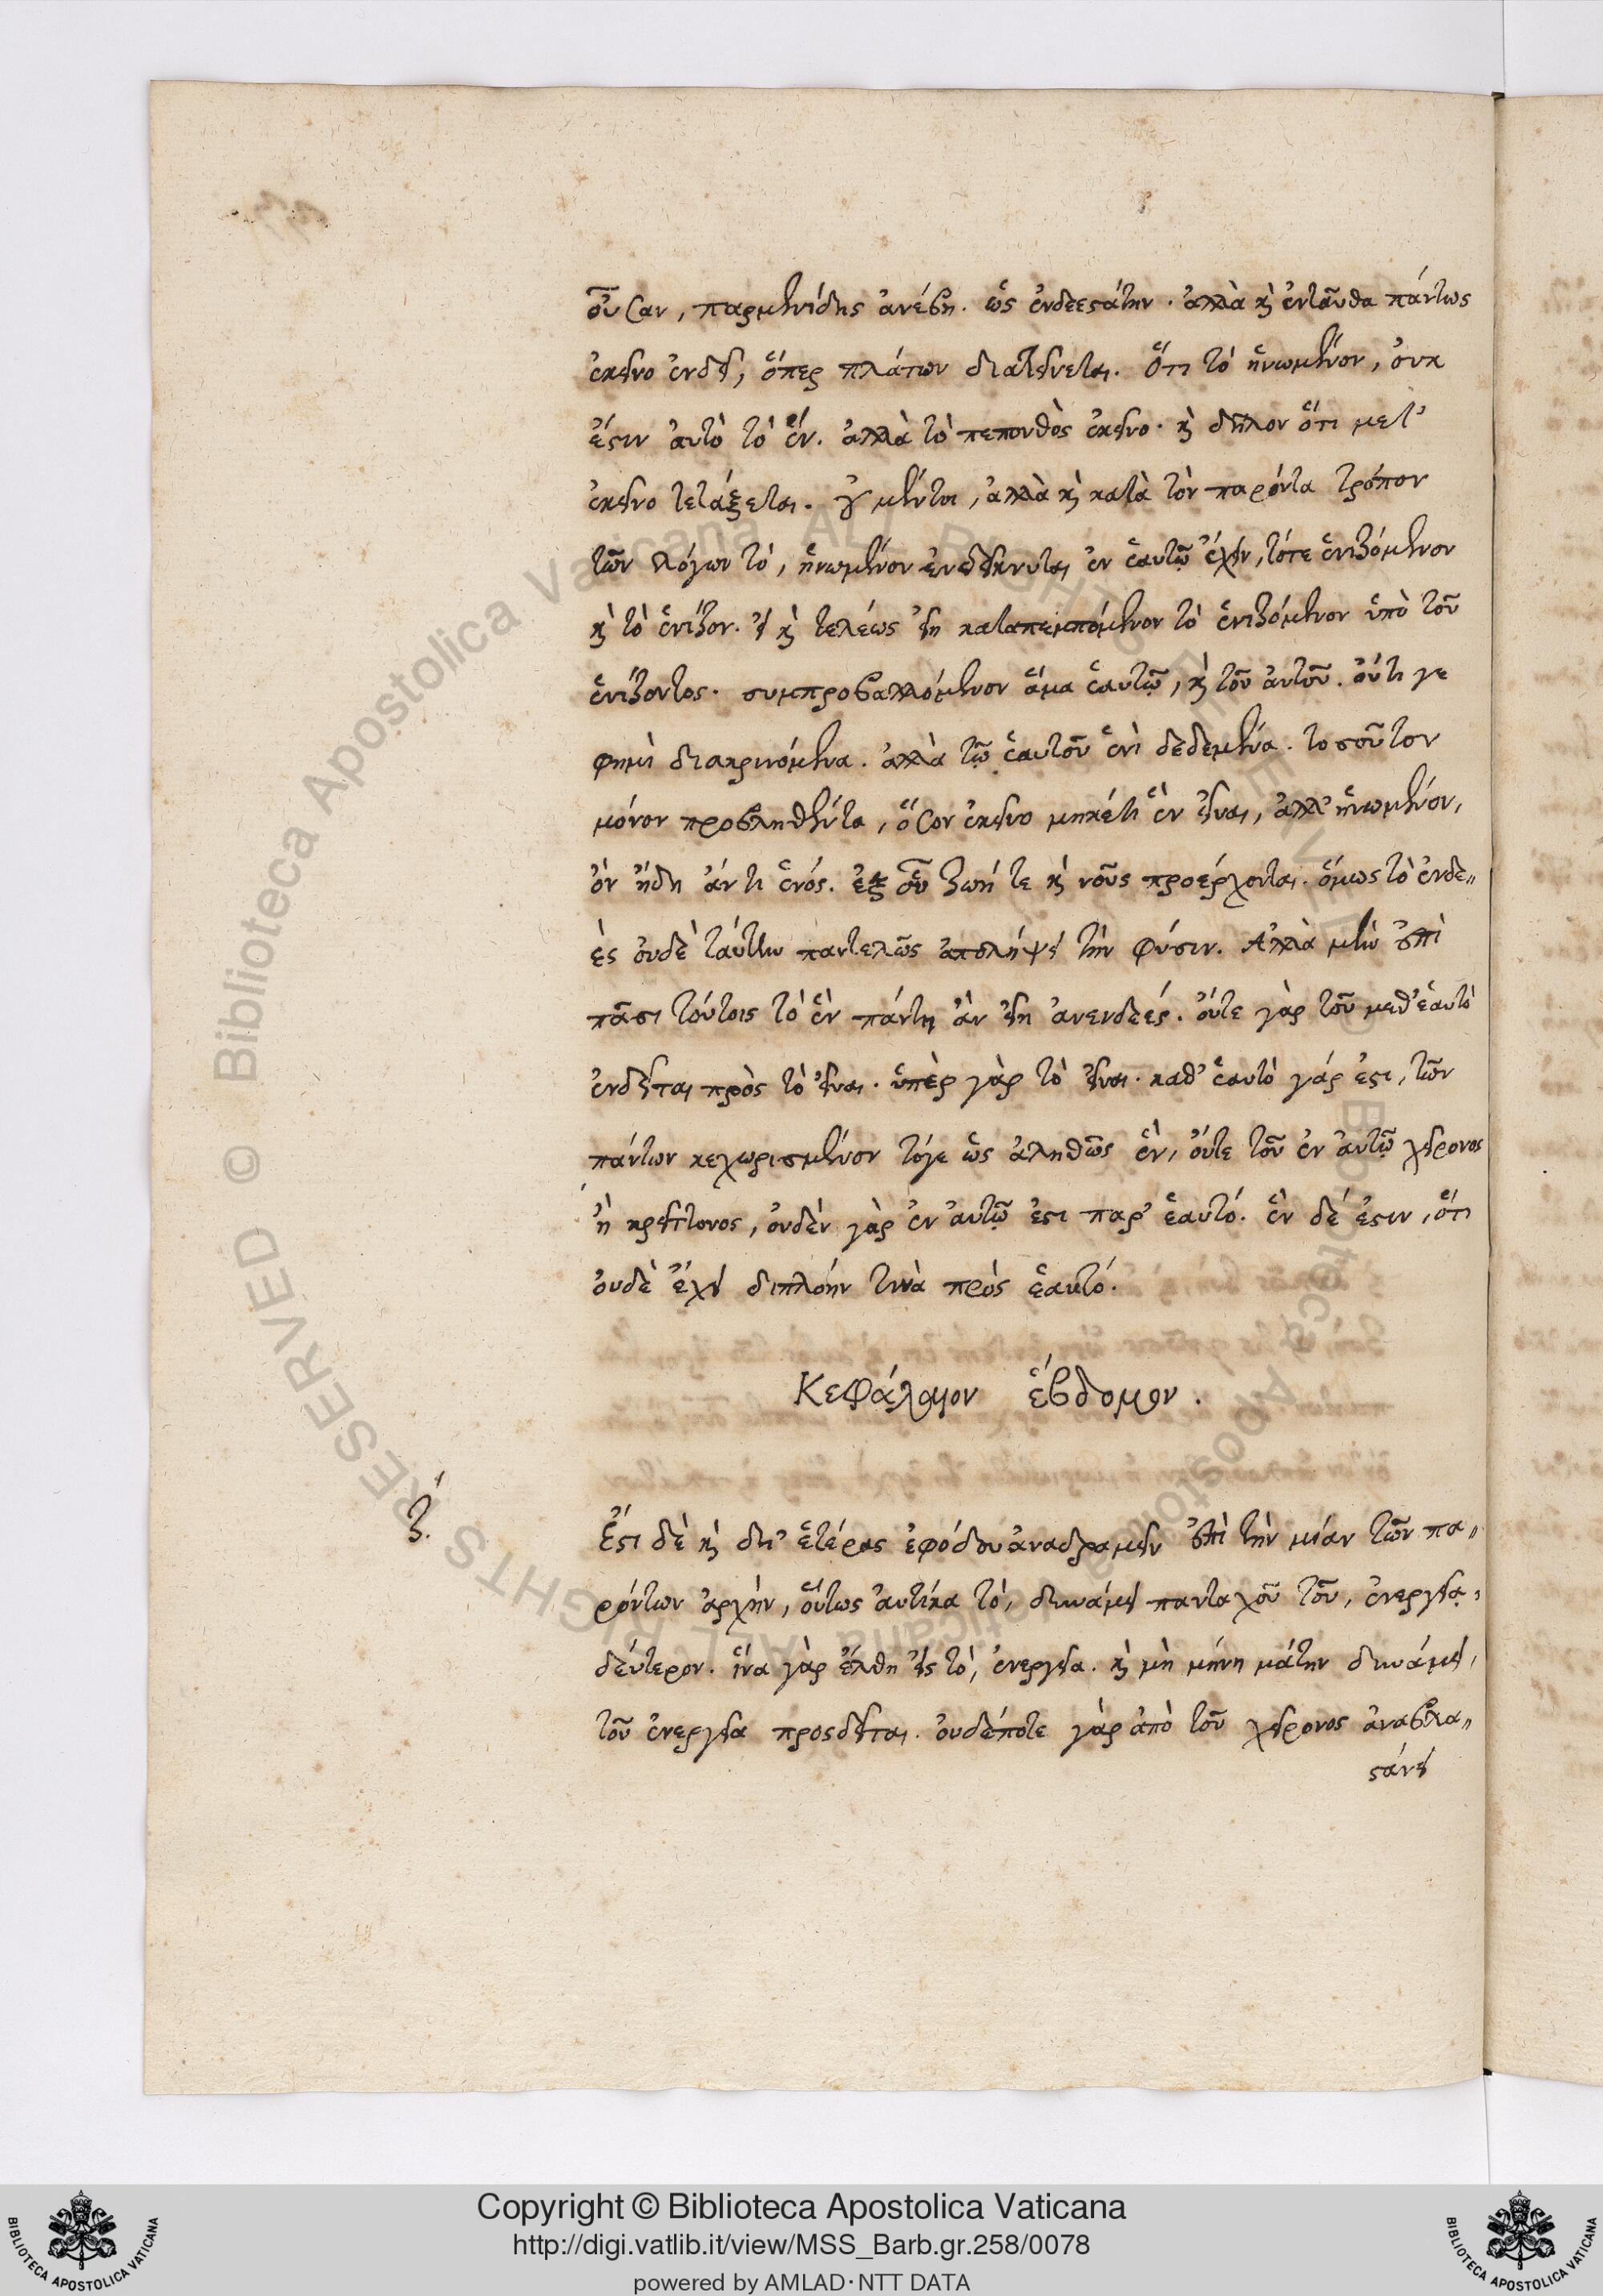 οὖσαν, παρμενίδης ἀνέβη. ὡς ἐνδεεστάτην. ἀλλὰ κὴ ἐνταῦθα πάντως
ἐκεῖνο ἐνδεῖ, ὅπερ πλάτων διατείνεται. Ὅτι τὸ ἡνωμένον, οὐκ
ἔστιν ἀυτὸ τὸ ἕν. ἀλλὰ τὸ πεπονθὸς ἐκεῖνο. κὴ δῆλον ὅτι μετ’
ἐκεῖνο τετάξεται. οὐ μέντοι, ἀλλὰ κὴ κατὰ τὸν παρόντα τρόπον
τῶν λόγων τὸ, ἡνωμένον ἐνδείκνυται ἐν ἑαυτῷ ἔχειν, τότε ἑνιζόμενον
κὴ τὸ ἑνίζον. εἰ κὴ τελέως εἴη καταπεμπόμενον τὸ ἑνιζόμενον ὑπὸ τοῦ
ἑνίζοντος. συμπροβαλλόμενον ἅμα ἑαυτῷ, κὴ τοῦ ἀυτοῦ. οὔτι γε
φημὶ διακρινόμενα. ἀλλὰ τῷ ἑαυτοῦ ἑνὶ δεδεμένα. τοσοῦτον
μόνον προβληθέντα, ὅσον ἐκεῖνο μηκέτι ἓν εἶναι, ἀλλ’ ἡνωμένον,
ὂν ἤδη ἀντὶ ἑνός. ἐξ οὗ ζωή τε κὴ νοῦς προέρχονται. ὅμως τὸ ἐνδε„
ὲς οὐδὲ ταύτην παντελῶς ἀπολήψει τὴν φύσιν. Ἀλλὰ μὴν ἐπὶ
πᾶσι τούτοις τὸ ἓν πάντη ἂν εἴη ἀνενδεές. οὔτε γὰρ τοῦ μεθ’ ἑαυτὸ
ἐνδεῖται πρὸς τὸ εἶναι. ὑπὲρ γὰρ τὸ εἶναι. καθ’ ἑαυτὸ γάρ ἐστι, τῶν
πάντων κεχωρισμένον τόγε ὡς ἀληθῶς ἓν, οὔτε τοῦ ἐν ἀυτῷ χείρονος
ἢ κρείττονος, οὐδὲν γὰρ ἐν ἀυτῷ ἐστι παρ’ ἑαυτό. ἓν δέ ἐστιν, ὅτι
οὐδὲ ἔχει διπλόην τινὰ πρὸς ἑαυτό.
Κεφάλαιον ἕβδομον.
ζ΄.
Ἔστι δὲ κὴ δι’ ἑτέρας ἐφόδου ἀναδραμεῖν ἐπὶ τὴν μίαν τῶν πα„
ρόντων ἀρχὴν, οὕτως ἀυτίκα τὸ, δυνάμει πανταχοῦ τοῦ, ἐνεργείᾳ,
δεύτερον. ἵνα γὰρ ἔλθῃ εἰς τὸ, ἐνεργεία. κὴ μὴ μένῃ μάτην δυνάμει,
τοῦ ἐνεργεία προσδεῖται. οὐδέποτε γὰρ ἀπὸ τοῦ χείρονος ἀναβλα„
στάνει
Copyright © Biblioteca Apostolica Vaticana
http://digi.vatlib.it/view/MSS_Barb.gr.258/0078
powered by AMLAD·NTT DATA